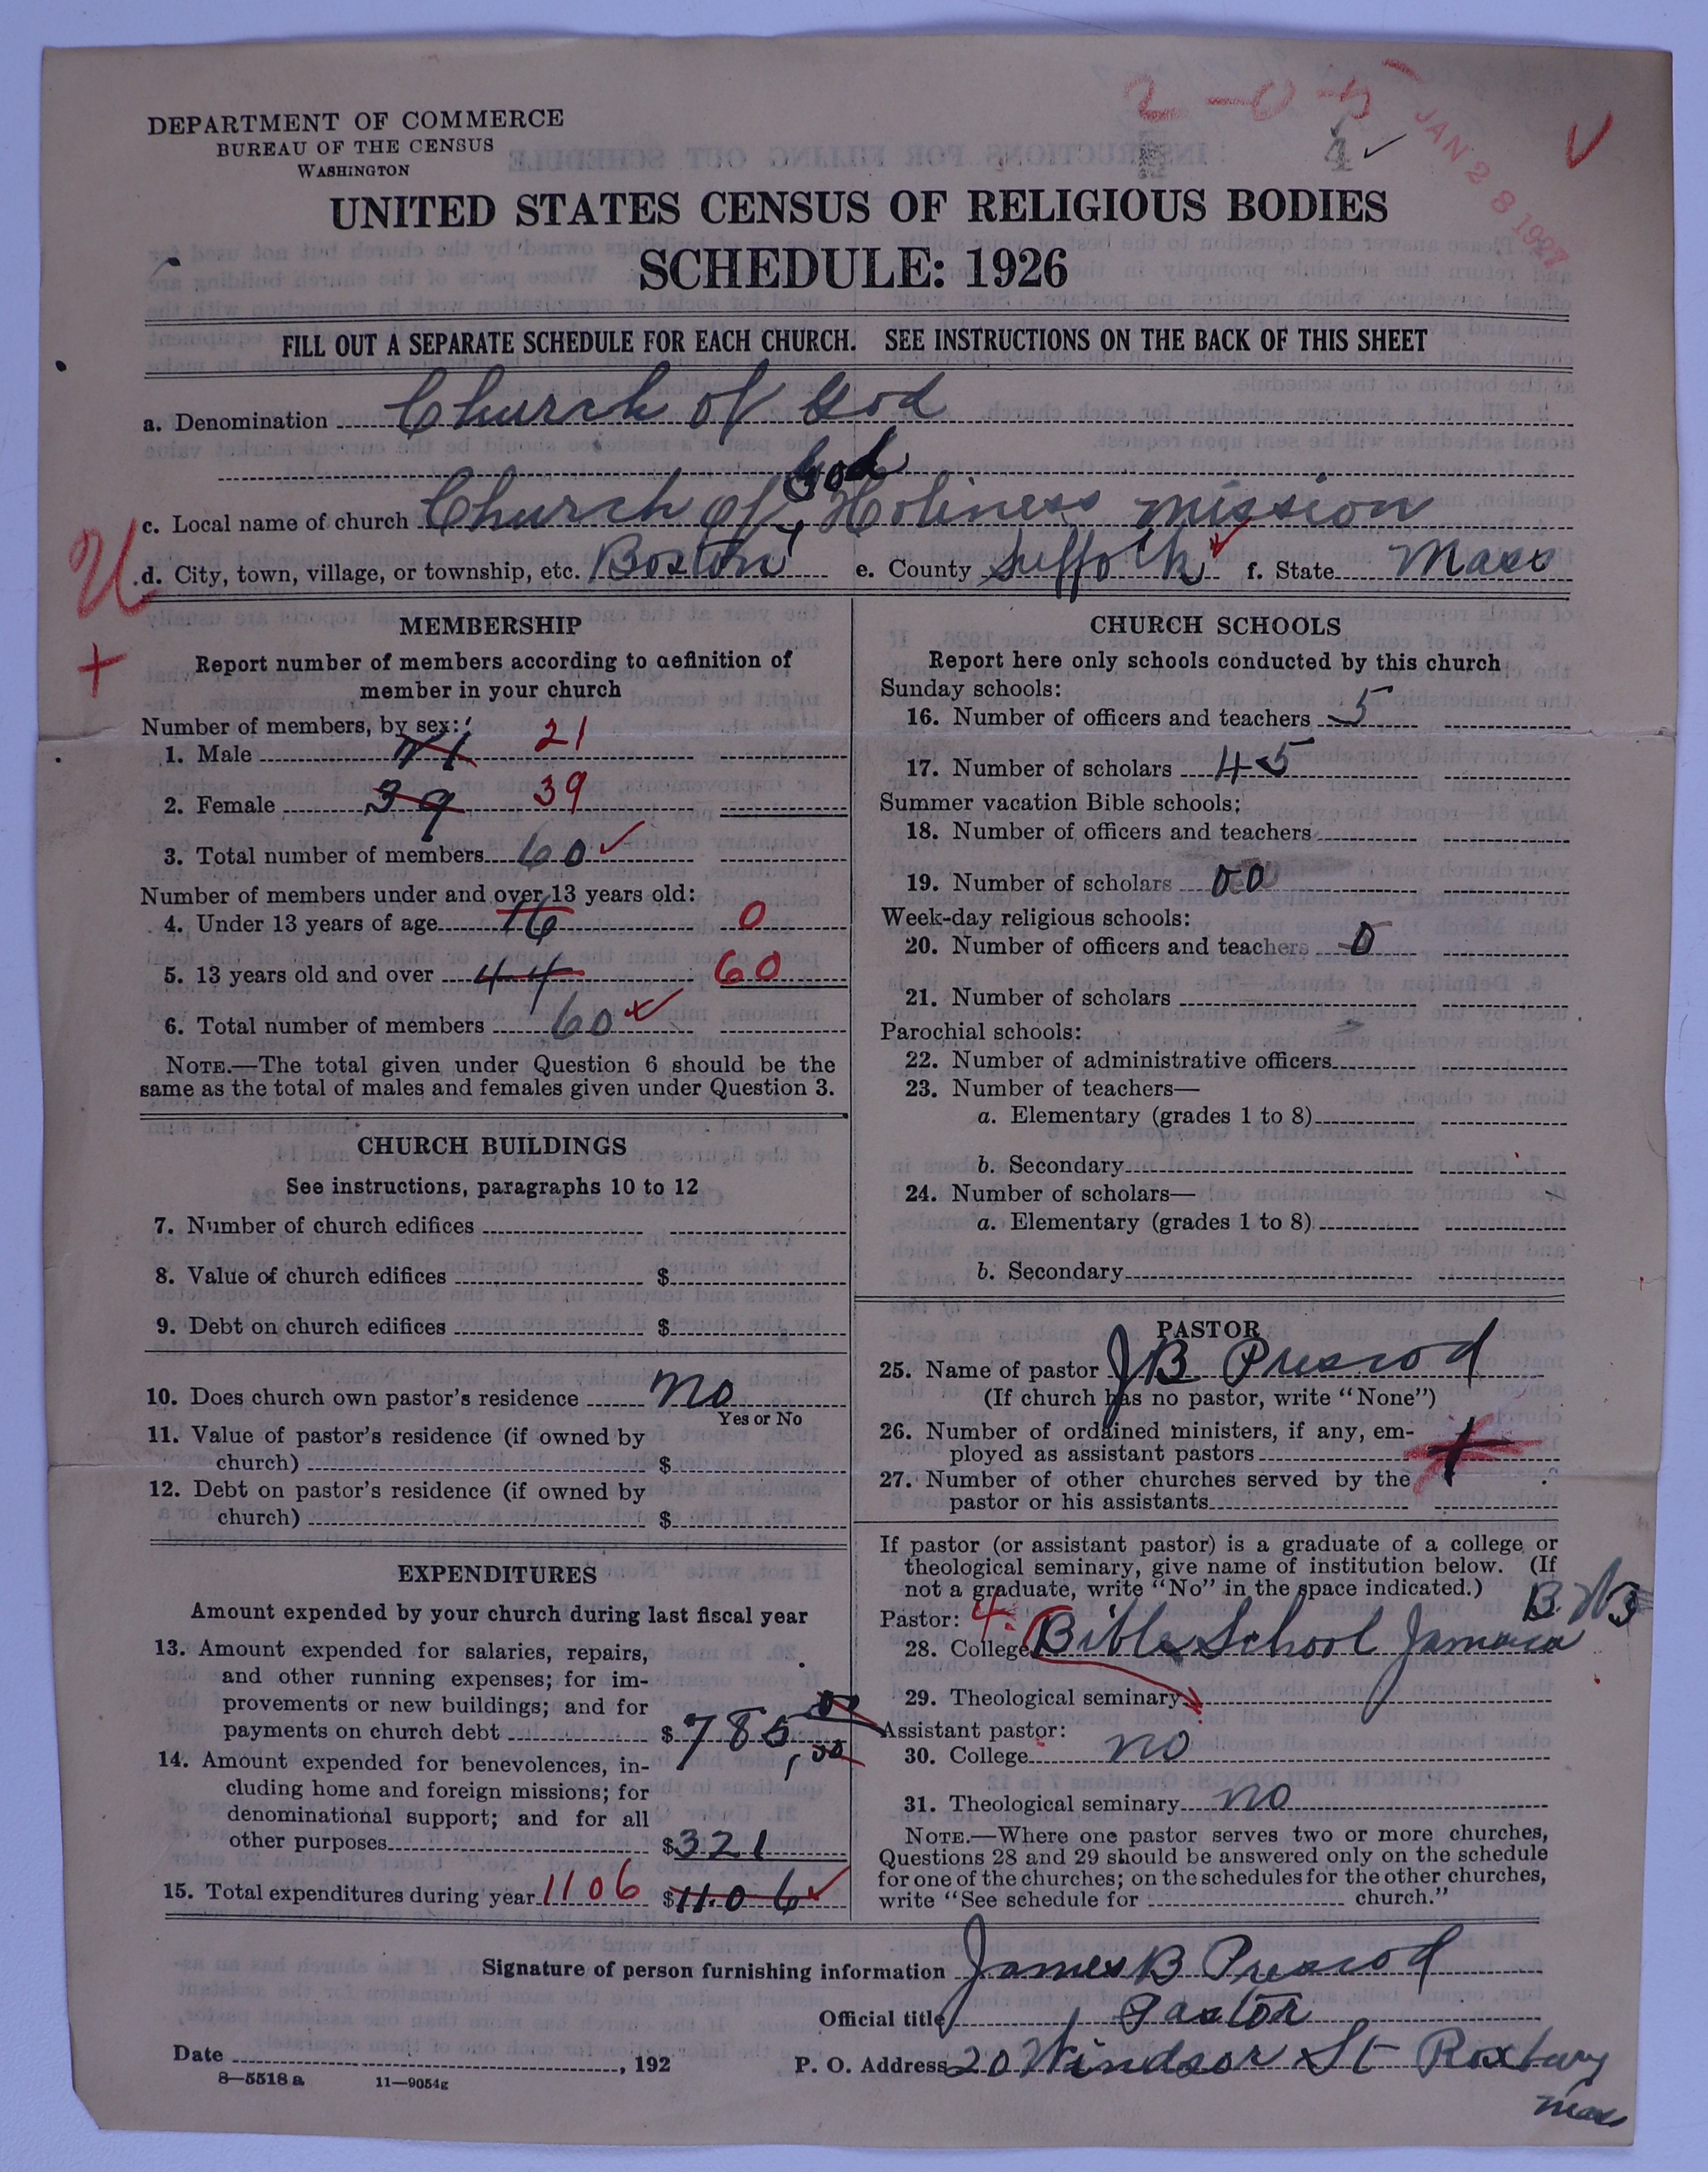 2-0-5
JAN 28 1927
4
DEPARTMENT OF COMMERCE
BUREAU OF THE CENSUS
WASHINGTON
UNITED STATES CENSUS OF RELIGIOUS BODIES
SCHEDULE: 1926
FILL OUT A SEPARATE SCHEDULE FOR EACH CHURCH. SEE INSTRUCTIONS ON THE BACK OF THIS SHEET
a. Denomination Church of God
God
c. Local name of church Church of, Holiness mission
U
d. City, town, village, or township, etc. Boston e. County Suffolk f. State Mass
+
MEMBERSHIP
Report number of members according to definition of
member in your church
Number of members, by sex:
1. Male 21 21
2. Female 39 39
3. Total number of members 60
Number of members under and over 13 years old:
4. Under 13 years of age 16 0
5. 13 years old and over 44 60
6. Total number of members 60
NOTE.—The total given under Question 6 should be the
same as the total of males and females given under Question 3.
CHURCH BUILDINGS
See instructions, paragraphs 10 to 12
7. Number of church edifices
8. Value of church edifices $
9. Debt on church edifices $
10. Does church own pastor's residence no
Yes or No
11. Value of pastor's residence (if owned by
church) $
12. Debt on pastor's residence (if owned by
church) $
EXPENDITURES
Amount expended by your church during last fiscal year
13. Amount expended for salaries, repairs,
and other running expenses; for im-
provements or new buildings; and for
payments on church debt $785,00
14. Amount expended for benevolences, in-
cluding home and foreign missions; for
denominational support; and for all
other purposes $321
15. Total expenditures during year 1106 $1106
CHURCH SCHOOLS
Report here only schools conducted by this church
Sunday schools:
16. Number of officers and teachers 5
17. Number of scholars 45
Summer vacation Bible schools:
18. Number of officers and teachers
19. Number of scholars 00
Week-day religious schools:
20. Number of officers and teachers 0
21. Number of scholars
Parochial schools:
22. Number of administrative officers
23. Number of teachers—
a. Elementary (grades 1 to 8)
b. Secondary
24. Number of scholars—
a. Elementary (grades 1 to 8)
b. Secondary
PASTOR
25. Name of pastor J B Prescod
(If church has no pastor, write "None")
26. Number of ordained ministers, if any, em-
ployed as assistant pastors
27. Number of other churches served by the
pastor or his assistants
If pastor (or assistant pastor) is a graduate of a college or
theological seminary, give name of institution below. (If
not a graduate, write "No" in the space indicated.)
Pastor: 4
28. College Bible School Jamaica
29. Theological seminary
Assistant pastor:
30. College no
31. Theological seminary no
NOTE.—Where one pastor serves two or more churches,
Questions 28 and 29 should be answered only on the schedule
for one of the churches; on the schedules for the other churches,
write "See schedule for church."
Signature of person furnishing information James B Prescod
Official title Pastor
Date , 192 P. O. Address 20 Windsor St Roxbury
Mass
8—5518 a 11—9054g